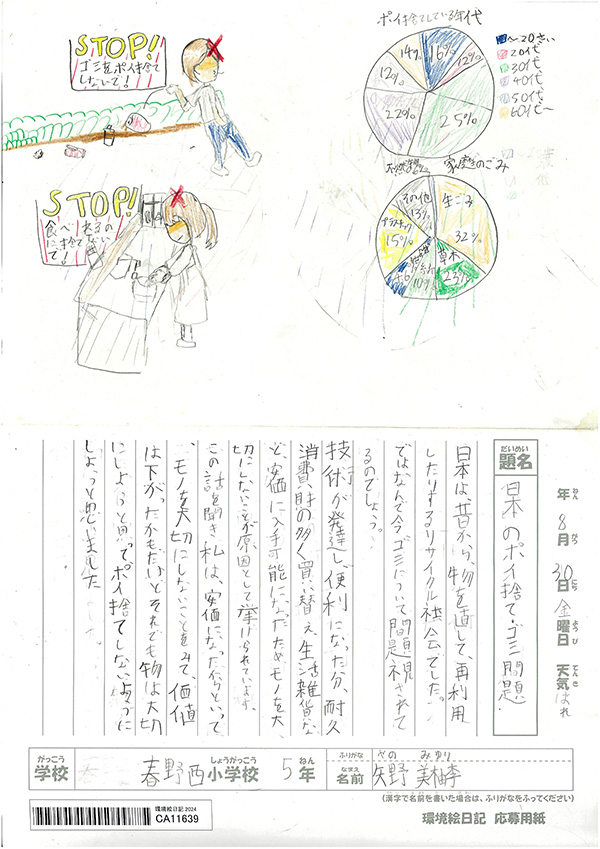 STOP!
ゴミをポイ捨て
しないで!
STOP!
ポイ捨てしている年代
16%
12%
25%
22%
12%
14%
~20さい
20代
30代
40代
50代
60代~
家庭のごみ
生ごみ
32%
草木
10%
プラスチック
15%
その他
13%
年 8月 30日 金曜日 天気 はれ
ねん がつ にち ようび てんき
だいめい
題名
日本のポイ捨て・ゴミ問題
日本は、昔から、物を直して、再利用
したりするリサイクル社会でした。
ではなんで今ゴミについて問題視されて
るのでしょう。
技術が発達し、便利になった分、耐久
消費財の多く買い替え、生活雑貨な
ど、安価に入手可能になったためモノを大
切にしないことが原因として挙げられています。
この話を聞き私は、安価になったからといって
、モノを大切にしないことをみて、価値
は下がったかもだけどそれでも物は大切
にしようと思ってポイ捨てしないように
しようと思いました
がっこう
学校
春野西
しょうがっこう
小学校
5
ねん
年
ふりがな
やの みゆり
なまえ
名前
矢野 美柚李
(漢字で名前を書いた場合は、ふりがなをふってください)
環境絵日記 2024
CA11639
環境絵日記 応募用紙